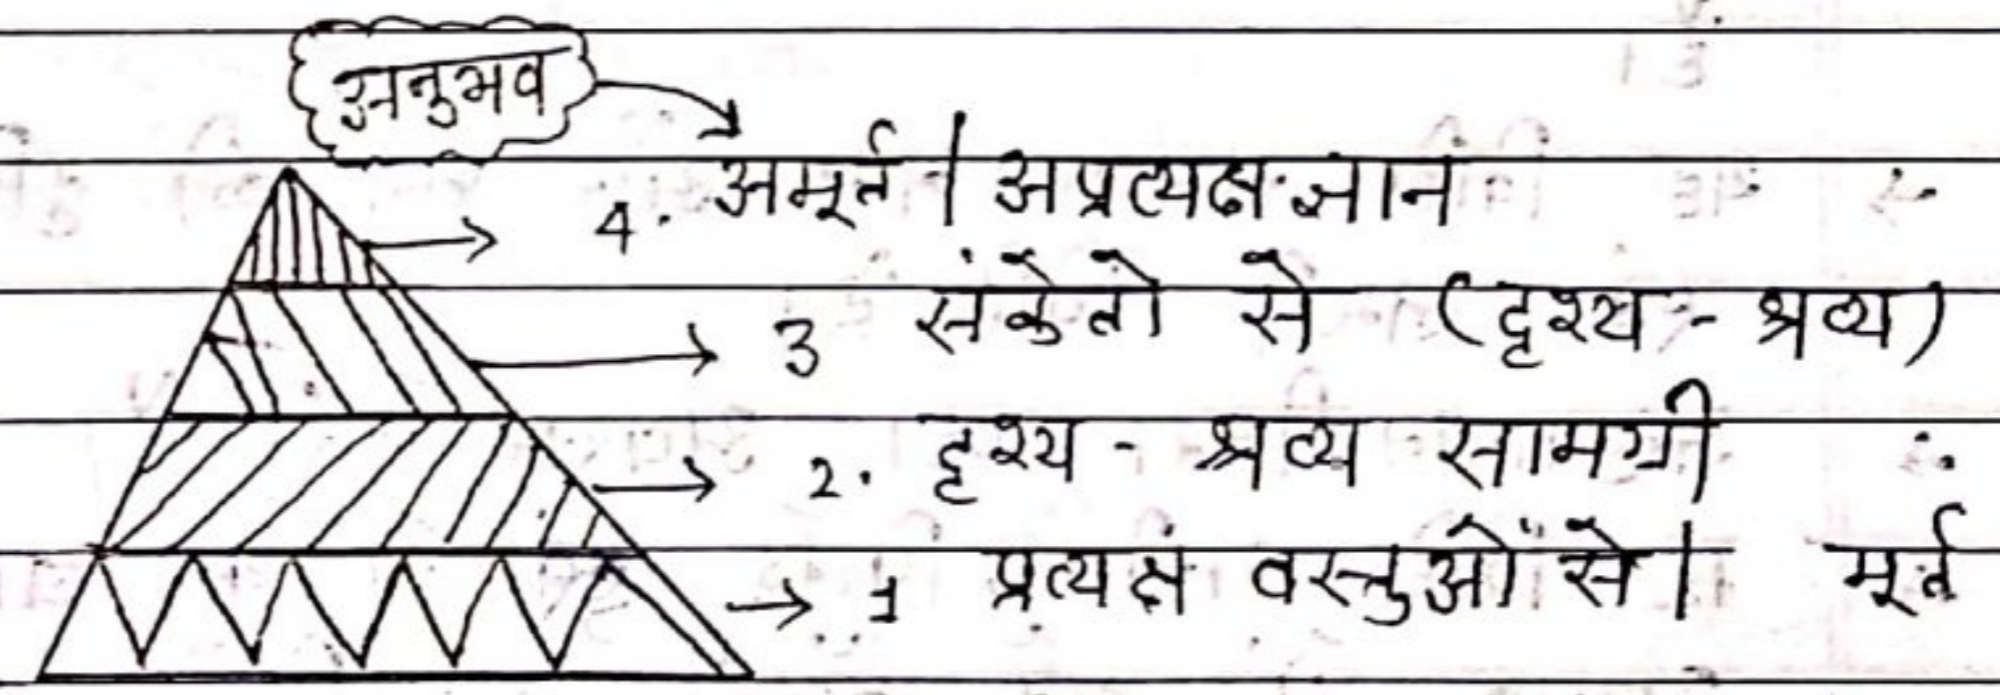 अनुभव
4. अमूर्त / अप्रत्यक्ष ज्ञान
3 संकेतो से (दृश्य - श्रव्य)
2. दृश्य - श्रव्य सामग्री
1 प्रत्यक्ष वस्तुओं से। मूर्त